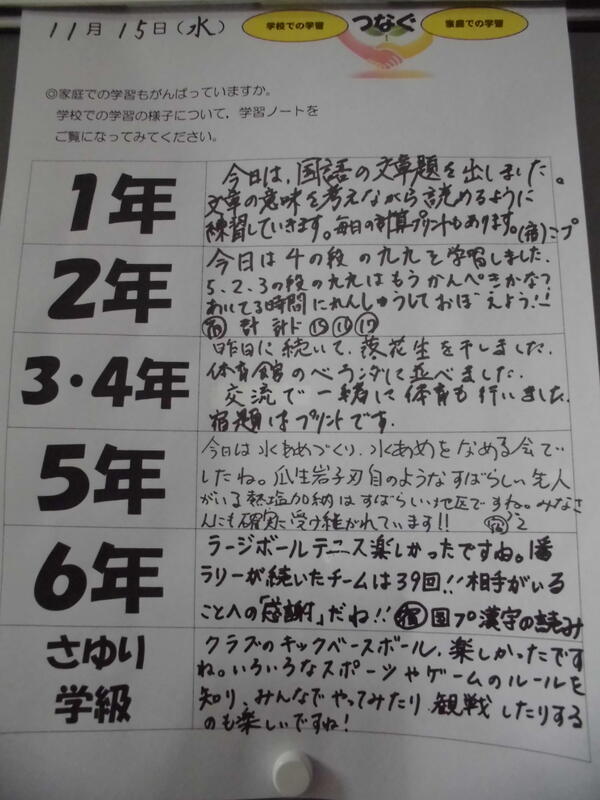 11月15日(水)
学校での学習 つなぐ 家庭での学習
◎家庭での学習もがんばっていますか。
学校での学習の様子について,学習ノートを
ご覧になってみてください。
1年
今日は、国語の文章題を出しました。
文章の意味を考えながら読めるように
練習していきます。毎日の計算プリントもあります。(宿)こプ
2年
今日は4の段の九九を学習しました。
5.2.3の段の九九はもうかんぺきかな?
あいてる時間にれんしゅうしておぼえよう!!
宿 計 計ド ⑮⑯⑰
3・4年
昨日に続いて、落花生を干しました。
体育館のベランダに並べました。
交流で一緒に体育も行いました。
宿題はプリントです。
5年
今日は水あめづくり、水あめをなめる会で
したね。瓜生岩子刀自のようなすばらしい先人
がいる熱塩加納はすばらしい地区ですね。みなさ
んにも確実に受け継がれています!!
6年
ラージボールテニス楽しかったですね。1番
ラリーが続いたチームは39回!!相手がいる
ことへの「感謝」だね!! 宿 国プ漢字の読み
さゆり
学級
クラブのキックベースボール、楽しかったです
ね。いろいろなスポーツやゲームのルールを
知り、みんなでやってみたり、観戦したりする
のも楽しいですね!